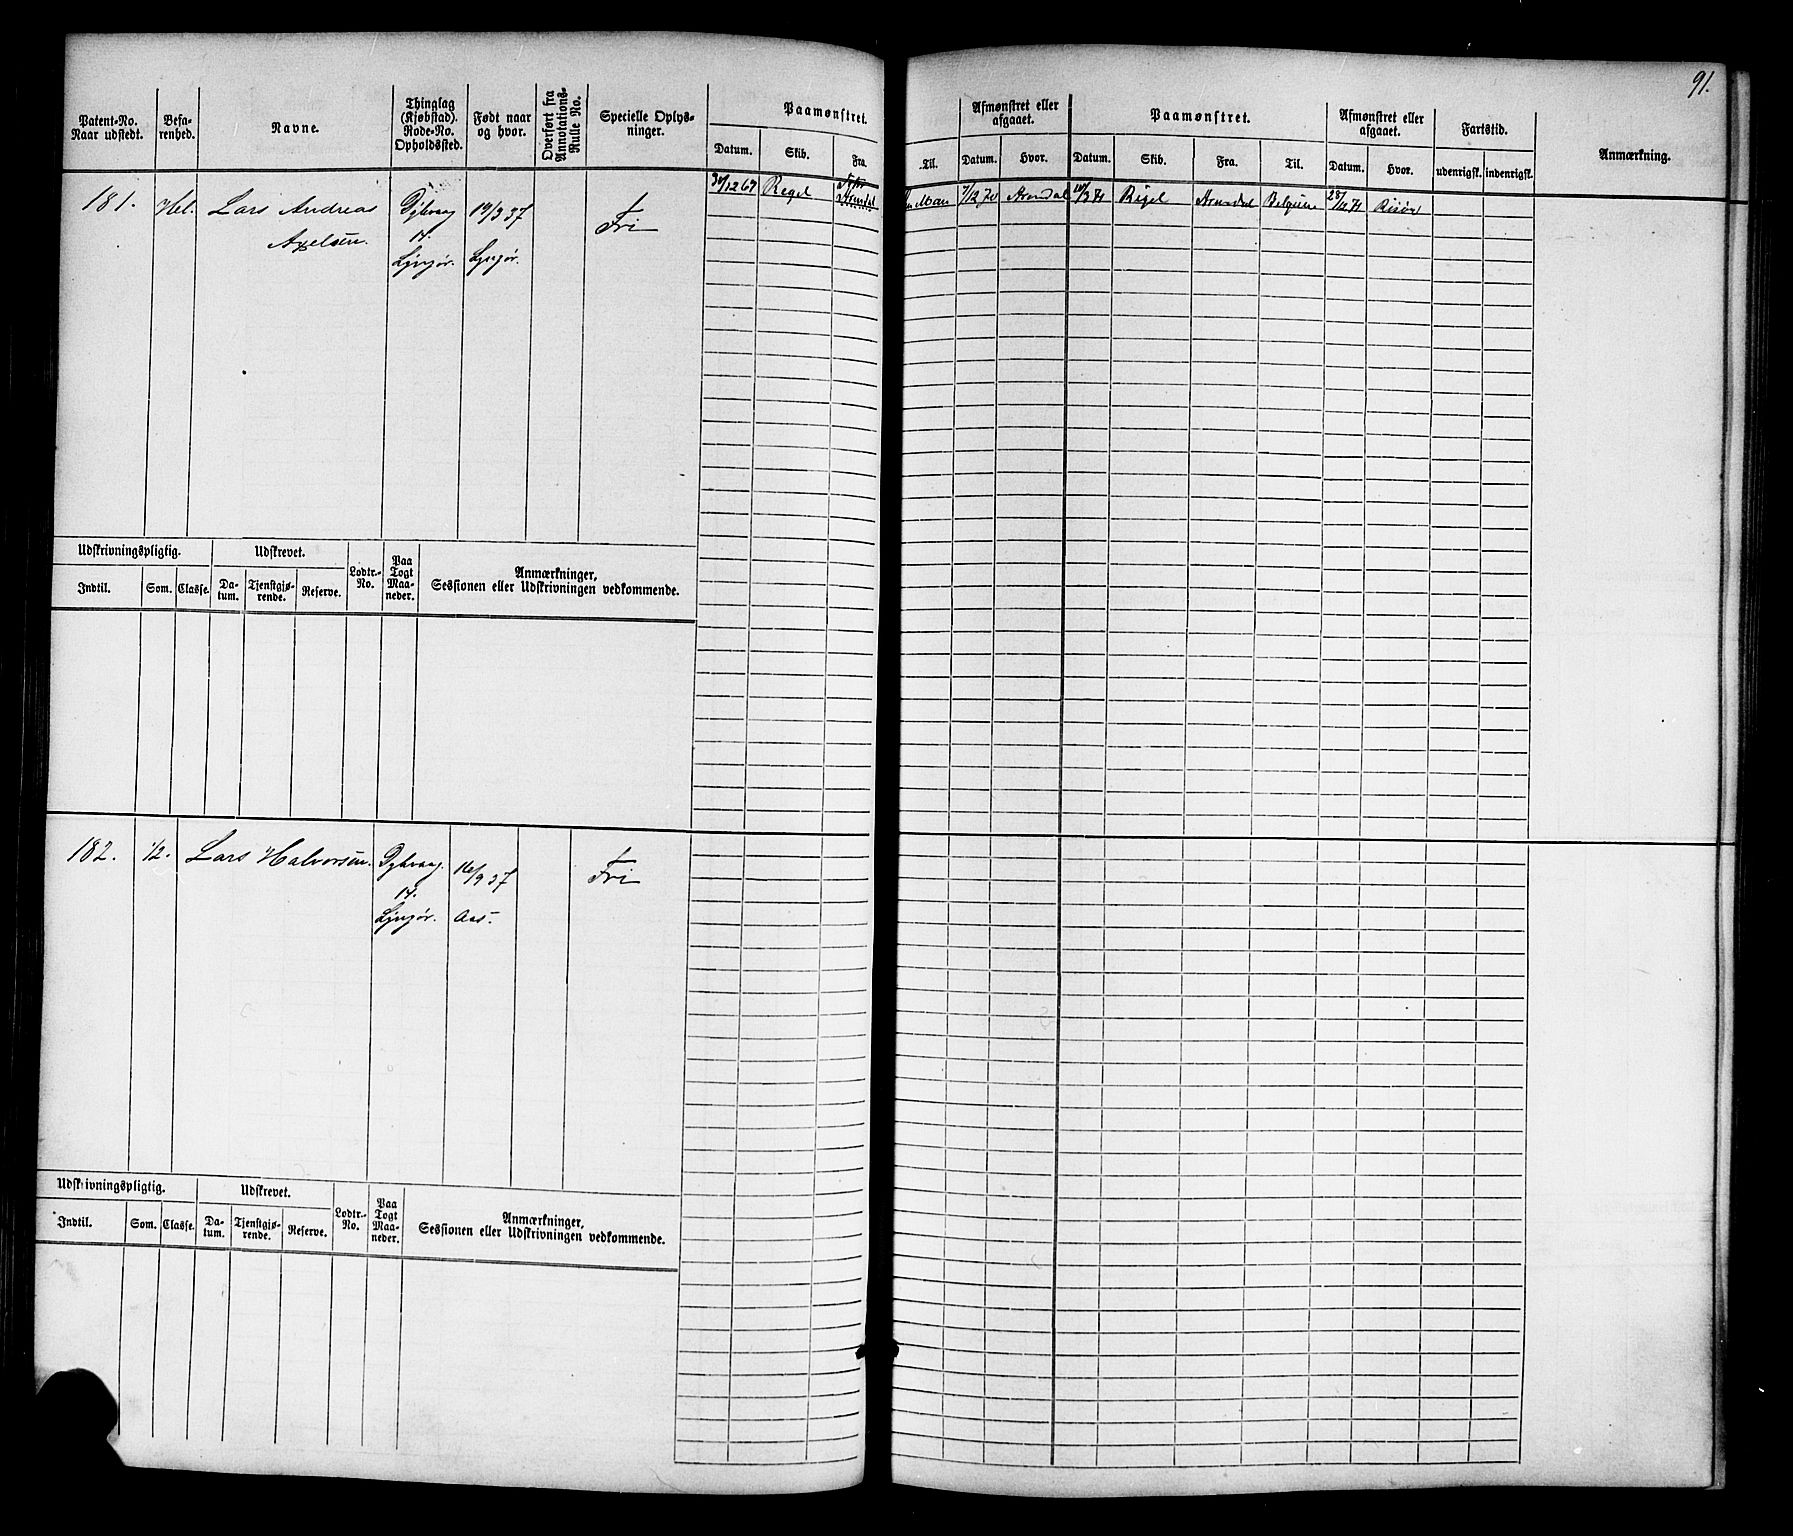 91.
Patent-No. Naar udstedt. Befa-renhed. Navne. Thinglag (Kjøbstad). Rode-No. Opholdssted. Født naar og hvor. Overført fra Annotations-Rulle No. Specielle Oplys-ninger. Paamønstret. Datum. Skib. Fra.
Til. Afmønstret eller afgaaet. Datum. Hvor. Paamønstret. Datum. Skib. Fra. Til. Afmønstret eller afgaaet. Datum. Hvor. Fartstid. udenrigsk. indenrigsk. Anmærkning.
181. Hel. Lars Andreas Dyhvaag 19/3 37 Fri
Axelsen. 17.
Lyngør. Lyngør.
Rigel Arendal
7/12 70 Arendal 10/3 71 Rigel Arendal Belgien 28/11 71 Risør
Udskrivningspligtig. Udskrevet. Lodtr.-No. Paa Togt Maa-neder. Anmærkninger,
Indtil. Som. Classe. Da-tum. Tjenstgjø-rende. Reserve. Sessionen eller Udskrivningen vedkommende.
182. 1/2. Lars Halvorsen. Dyhvaag. 16/9 37 Fri
17.
Lyngør. Aas.
Udskrivningspligtig. Udskrevet. Lodtr.-No. Paa Togt Maa-neder. Anmærkninger,
Indtil. Som. Classe. Da-tum. Tjenstgjø-rende. Reserve. Sessionen eller Udskrivningen vedkommende.